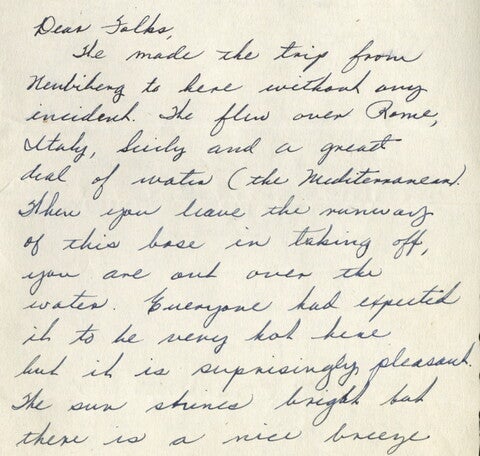 Dear Folks,
We made the trip from
Neubiberg to here without any
incident. We flew over Rome,
Italy, Sicily and a great
deal of water (the Mediterranean).
When you leave the runway
of this base in taking off,
you are out over the
water. Everyone had expected
it to be very hot here
but it is surprisingly pleasant.
The sun shines bright but
there is a nice breeze